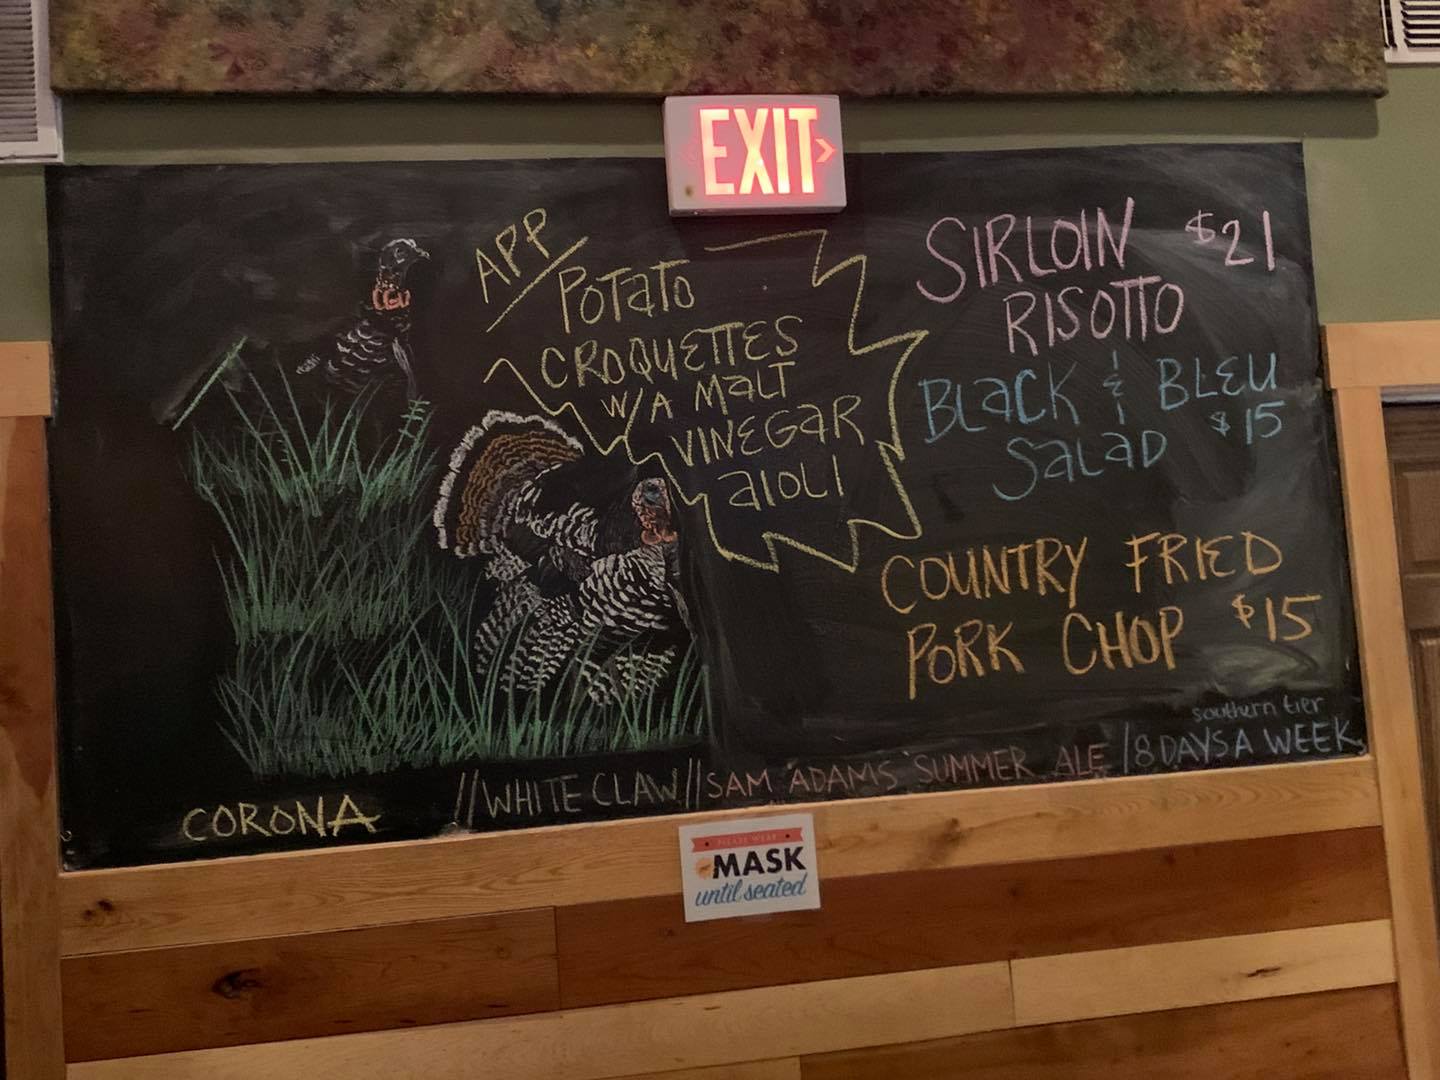 EXIT
APP/
POTATO
CROQUETTES
W/A MALT
VINEGAR
AIOLI
SIRLOIN $21
RISOTTO
BLACK & BLEU
SALAD $15
COUNTRY FRIED
PORK CHOP $15
southern tier
CORONA //WHITE CLAW//SAM ADAMS SUMMER ALE /8 DAYS A WEEK
PLEASE WEAR
MASK
until seated